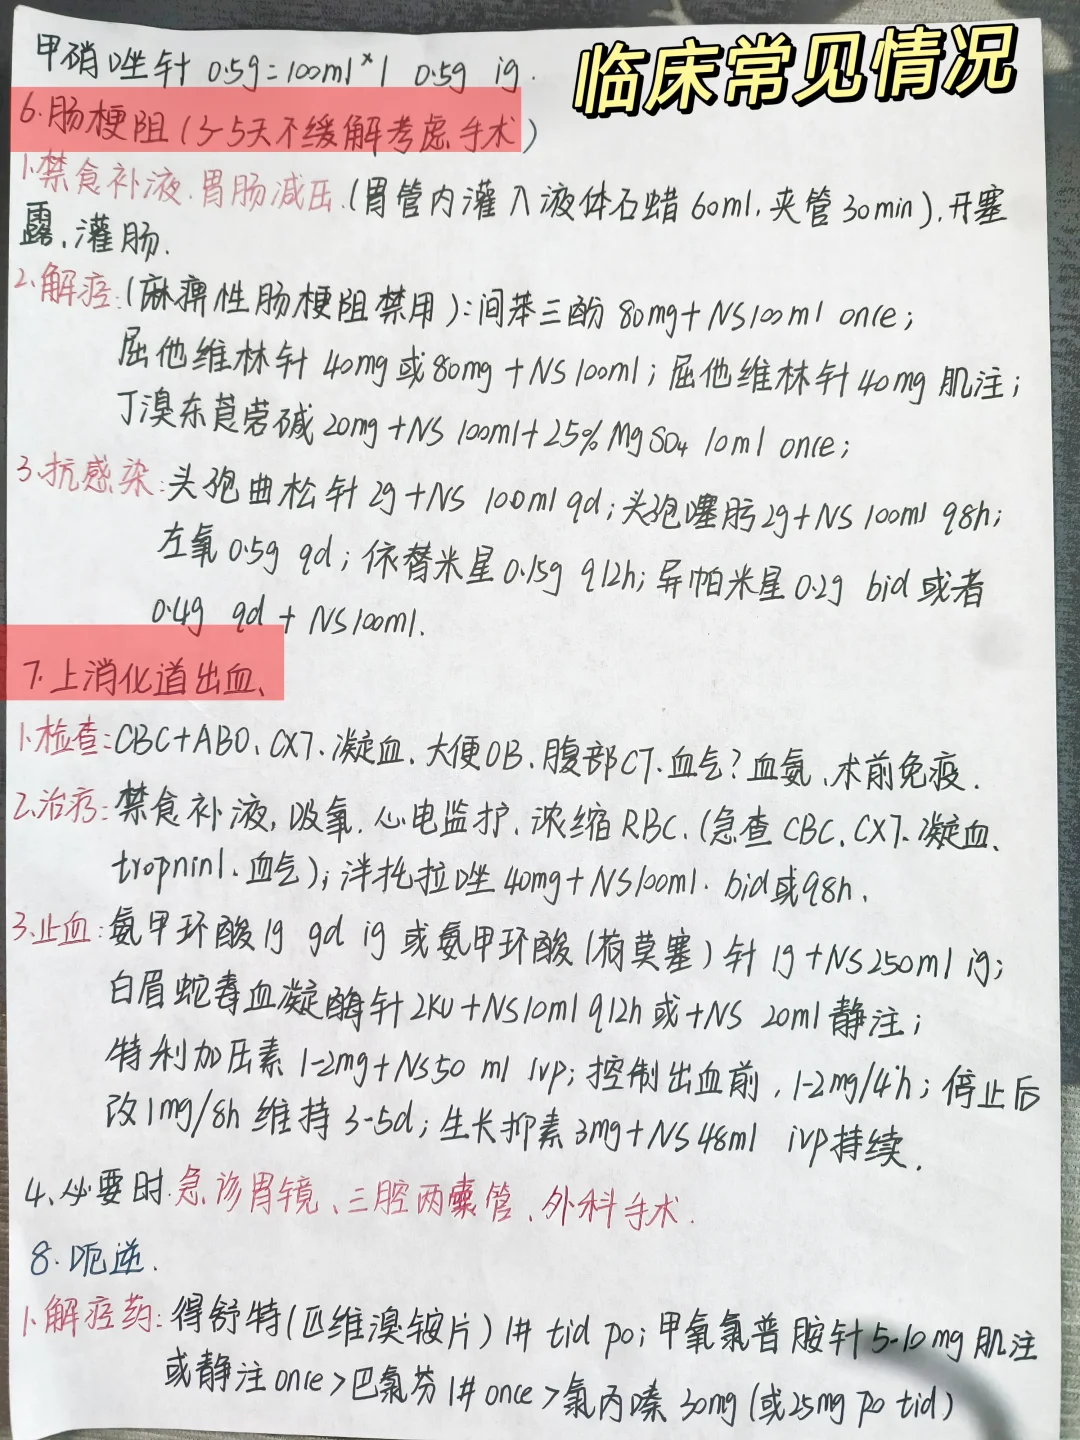 临床常见情况
甲硝唑针 0.5g=100ml×1 0.5g ig.
6.肠梗阻(3-5天不缓解考虑手术)
1.禁食补液.胃肠减压.(胃管内灌入液体石蜡60ml.夹管30min),开塞
露,灌肠.
2.解痉:(麻痹性肠梗阻禁用):间苯三酚80mg+NS100ml once;
屈他维林针40mg或80mg+NS100ml;屈他维林针40mg肌注;
丁溴东莨菪碱20mg+NS 100ml+25%MgSO4 10ml once;
3.抗感染:头孢曲松针2g+NS 100ml qd;头孢噻肟2g+NS100ml q8h;
左氧0.5g qd;依替米星0.15g q12h;异帕米星0.2g bid或者
0.4g qd+NS100ml.
7.上消化道出血、
1.检查:CBC+ABO、CX7、凝血.大便OB.腹部CT.血气?血氨、术前免疫.
2.治疗:禁食补液,吸氧.心电监护.浓缩RBC.(急查CBC.CX7.凝血、
tropninl.血气);泮托拉唑40mg+NS100ml.bid或q8h.
3.止血:氨甲环酸1g qd ig或氨甲环酸(荷莫塞)针1g+NS250ml ig;
白眉蛇毒血凝酶针2KU+NS10ml q12h或+NS 20ml静注;
特利加压素1-2mg+NS50ml ivp;控制出血前,1-2mg/4h;停止后
改1mg/8h维持3-5d;生长抑素3mg+NS48ml ivp持续.
4.必要时.急诊胃镜、三腔两囊管、外科手术.
8.呃逆.
1.解痉药:得舒特(匹维溴铵片)1# tid po;甲氧氯普胺针5-10mg肌注
或静注once>巴氯芬1# once>氯丙嗪30mg(或25mg po tid)